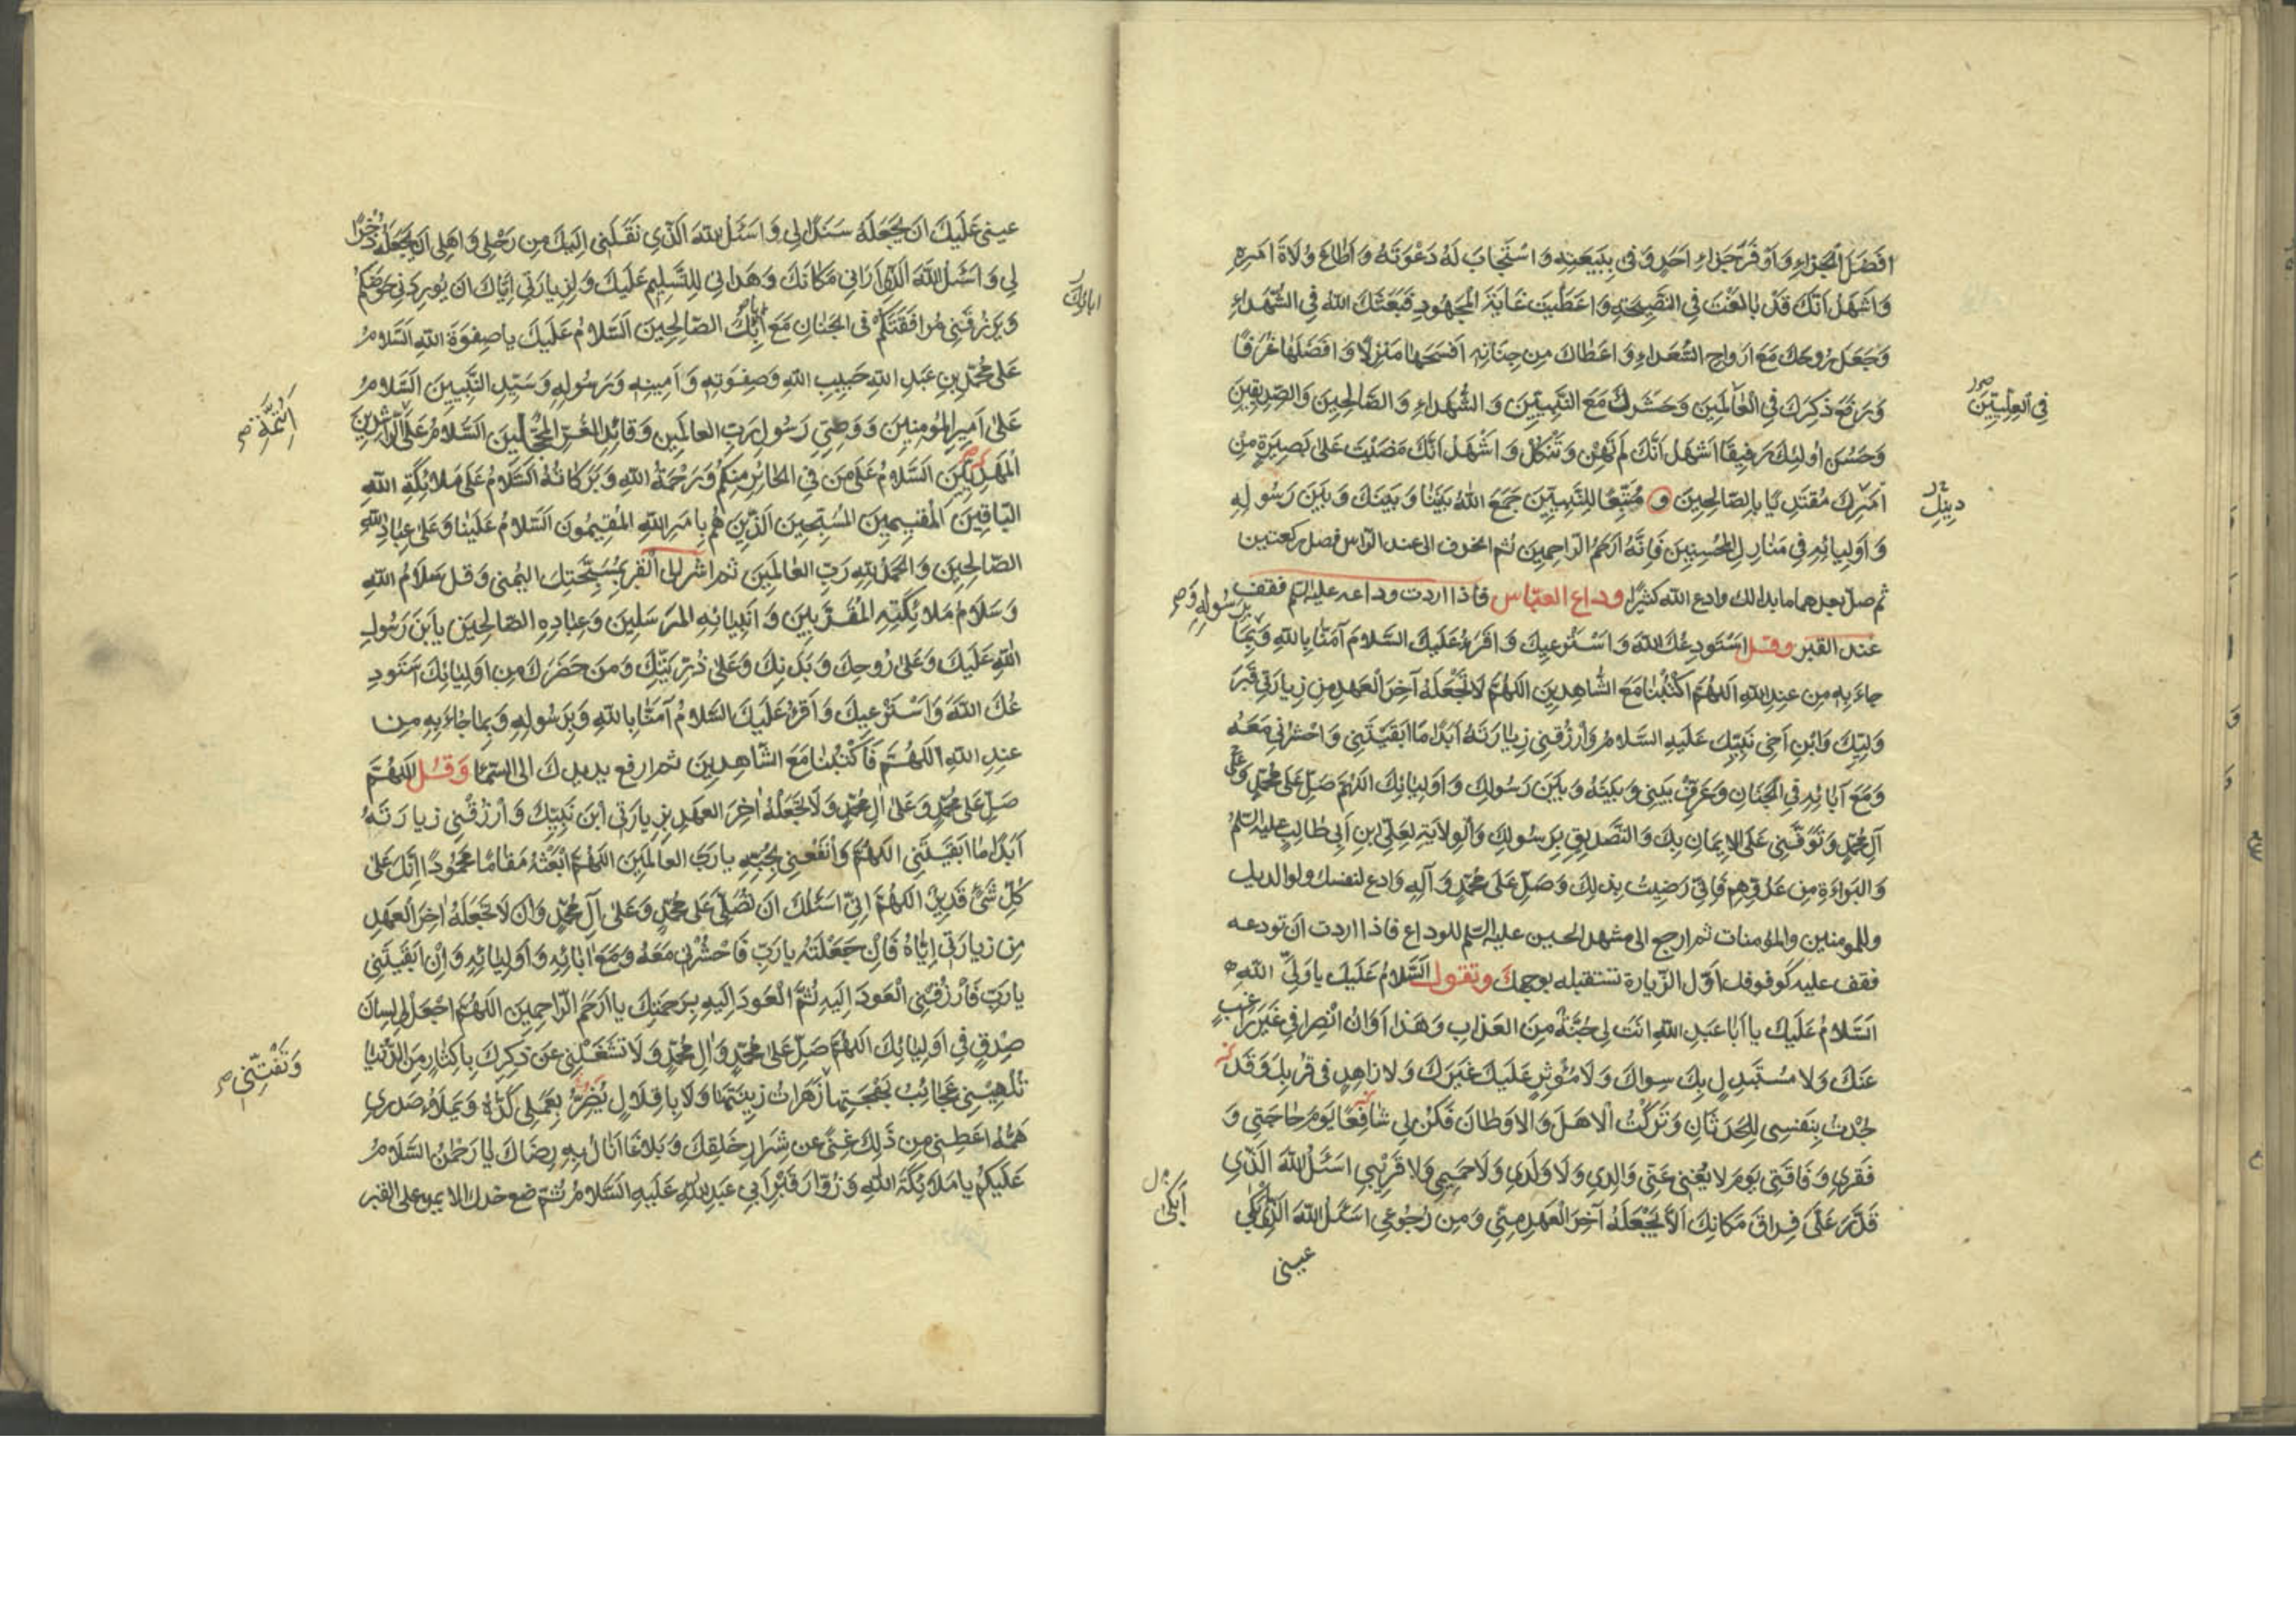 اَفْضَلَ الْجَزاءِ وَاَوْفَرَ جَزاءِ اَحَدٍ وَفى بِبَيْعَتِهِ وَاسْتَجابَ لَهُ دَعْوَتَهُ وَاَطاعَ وُلاةَ اَمْرِهِ
وَاَشْهَدُ اَنَّكَ قَدْ بالَغْتَ فِي النَّصيحَةِ وَاَعْطَيْتَ غايَةَ الْمَجْهُودِ فَبَعَثَكَ اللهُ فِي الشُّهَداءِ
وَجَعَلَ رُوحَكَ مَعَ اَرْواحِ السُّعَداءِ وَاَعْطاكَ مِنْ جِنانِهِ اَفْسَحَها مَنْزِلًا وَاَفْضَلَها غُرَفًا
وَرَفَعَ ذِكْرَكَ فِي الْعالَمينَ وَحَشَرَكَ مَعَ النَّبِيّينَ وَالشُّهَداءِ وَالصّالِحينَ وَالصِّدّيقينَ
فِي الْعِلِّيّينَ
وَحَسُنَ اُولئِكَ رَفيقًا اَشْهَدُ اَنَّكَ لَمْ تَهِنْ وَتَنْكُلْ وَاَشْهَدُ اَنَّكَ مَضَيْتَ عَلى بَصيرَةٍ مِنْ
اَمْرِكَ مُقْتَدِيًا بِالصّالِحينَ وَ مُتَّبِعًا لِلنَّبِيّينَ جَمَعَ اللهُ بَيْنَنا وَبَيْنَكَ وَبَيْنَ رَسُولِهِ
دينِكَ
وَاَوْلِيائِهِ في مَنازِلِ الْمُحْسِنينَ فَاِنَّهُ اَرْحَمُ الرّاحِمينَ ثم انحرف الى عند الراس فصل ركعتين
ثم صلّ بعدهما ما بدا لك وادع الله كثيرًا وداع العبّاس فاذا اردت وداعه عليه السّلم فقف
عند القبر وقل اَسْتَوْدِعُكَ اللهَ وَاَسْتَرْعيكَ وَاَقْرَءُ عَلَيْكَ السَّلامَ آمَنّا بِاللهِ وَبِما
بِرَسُولِهِ وَ
جاءَ بِهِ مِنْ عِنْدِ اللهِ اَللّهُمَّ اكْتُبْنا مَعَ الشّاهِدينَ اَللّهُمَّ لا تَجْعَلْهُ آخِرَ الْعَهْدِ مِنْ زِيارَتي قَبْرَ
وَلِيِّكَ وَابْنِ اَخي نَبِيِّكَ عَلَيْهِ السَّلامُ وَارْزُقْني زِيارَتَهُ اَبَدًا ما اَبْقَيْتَني وَاحْشُرْني مَعَهُ
وَمَعَ آبائِهِ فِي الْجِنانِ وَعَرِّفْ بَيْني وَبَيْنَهُ وَبَيْنَ رَسُولِكَ وَاَوْلِيائِكَ اَللّهُمَّ صَلِّ عَلى مُحَمَّدٍ وَعَلى
آلِ مُحَمَّدٍ وَتَوَفَّني عَلَى الْايمانِ بِكَ وَالتَّصْديقِ بِرَسُولِكَ وَالْوِلايَةِ لِعَلِيِّ بْنِ اَبي طالِبٍ عليه السلم
وَالْبَراءَةِ مِنْ عَدُوِّهِمْ فَاِنّي رَضيتُ بِذلِكَ وَصَلِّ عَلى مُحَمَّدٍ وَآلِهِ وادع لنفسك ولوالديك
وللمومنين والمؤمنات ثم ارجع الى مشهد الحسين عليه السّلم للوداع فاذا اردت ان تودعه
فقف عليه كوقوفك اوّل الزّيارة تستقبله بوجهك وتقول اَلسَّلامُ عَلَيْكَ يا وَلِيَّ اللهِ
اَلسَّلامُ عَلَيْكَ يا اَبا عَبْدِ اللهِ اَنْتَ لي جُنَّةٌ مِنَ الْعَذابِ وَهَذا اَوانُ انْصِرافي غَيْرَ راغِبٍ
عَنْكَ وَلا مُسْتَبْدِلٍ بِكَ سِواكَ وَلا مُؤْثِرٍ عَلَيْكَ غَيْرَكَ وَلا زاهِدٍ في قُرْبِكَ وَقَدْ
جُدْتُ بِنَفْسي لِلْحَدَثانِ وَتَرَكْتُ الْاَهْلَ وَالْاَوْطانَ فَكُنْ لي شافِعًا يَوْمَ حاجَتي وَ
فَقْري وَفاقَتي يَوْمَ لا يُغْني عَنّي والِدي وَلا وَلَدي وَلا حَميمي وَلا قَريبي اَسْئَلُ اللهَ الَّذي
قَدَّرَ عَلَيَّ فِراقَ مَكانِكَ اَلّا يَجْعَلَهُ آخِرَ الْعَهْدِ مِنّي وَمِنْ رُجُوعي اَسْئَلُ اللهَ الَّذي
اَبْكى
عيني
عيني عَلَيْكَ اَنْ يَجْعَلَهُ سَنَدًا لي وَاَسْئَلُ اللهَ الَّذي نَقَلَني اِلَيْكَ مِنْ رَحْلي وَاَهْلي اَنْ يَجْعَلَهُ ذُخْرًا
لي وَاَسْئَلُ اللهَ الَّذي اَراني مَكانَكَ وَهَداني لِلتَّسْليمِ عَلَيْكَ وَلِزِيارَتي اِيّاكَ اَنْ يُورِدَني حَوْضَكُمْ
وَيَرْزُقَني مُرافَقَتَكُمْ فِي الْجِنانِ مَعَ آبائِكَ الصّالِحينَ اَلسَّلامُ عَلَيْكَ يا صِفْوَةَ اللهِ اَلسَّلامُ
ابائِكَ
عَلى مُحَمَّدِ بْنِ عَبْدِ اللهِ حَبيبِ اللهِ وَصِفْوَتِهِ وَاَمينِهِ وَرَسُولِهِ وَسَيِّدِ النَّبِيّينَ اَلسَّلامُ
عَلى اَميرِ الْمُؤْمِنينَ وَوَصِيِّ رَسُولِ رَبِّ الْعالَمينَ وَقائِدِ الْغُرِّ الْمُحَجَّلينَ اَلسَّلامُ عَلَى الرّاشِدينَ
اَئِمَّةِ
الْمَهْدِيّينَ اَلسَّلامُ عَلى مَنْ فِي الْحائِرِ مِنْكُمْ وَرَحْمَةُ اللهِ وَبَرَكاتُهُ اَلسَّلامُ عَلى مَلائِكَةِ اللهِ
الْباقينَ الْمُقيمينَ الْمُسَبِّحينَ الَّذينَ هُمْ بِاَمْرِ اللهِ الْمُقيمُونَ اَلسَّلامُ عَلَيْنا وَعَلى عِبادِ اللهِ
الصّالِحينَ وَالْحَمْدُ لِلّهِ رَبِّ الْعالَمينَ ثم اشر الى القبر بمُسَبِّحَتِكَ اليُمنى وَقل سَلامُ اللهِ
وَسَلامُ مَلائِكَتِهِ الْمُقَرَّبينَ وَاَنْبِيائِهِ الْمُرْسَلينَ وَعِبادِهِ الصّالِحينَ يا بْنَ رَسُولِ
اللهِ عَلَيْكَ وَعَلى رُوحِكَ وَبَدَنِكَ وَعَلى ذُرِّيَّتِكَ وَمَنْ حَضَرَكَ مِنْ اَوْلِيائِكَ اَسْتَوْدِ
عُكَ اللهَ وَاَسْتَرْعيكَ وَاَقْرَءُ عَلَيْكَ السَّلامُ آمَنّا بِاللهِ وَبِرَسُولِهِ وَبِما جاءَ بِهِ مِنْ
عِنْدِ اللهِ اَللّهُمَّ فَاكْتُبْنا مَعَ الشّاهِدينَ ثم ارفع يديك الى السّما وَقُل اَللّهُمَّ
صَلِّ عَلى مُحَمَّدٍ وَعَلى آلِ مُحَمَّدٍ وَلا تَجْعَلْهُ آخِرَ الْعَهْدِ مِنْ زِيارَتي ابْنَ نَبِيِّكَ وَارْزُقْني زِيارَتَهُ
اَبَدًا ما اَبْقَيْتَني اَللّهُمَّ وَانْفَعْني بِحُبِّهِ يا رَبَّ الْعالَمينَ اَللّهُمَّ ابْعَثْهُ مَقامًا مَحْمُودًا اِنَّكَ عَلى
كُلِّ شَيْءٍ قَديرٌ اَللّهُمَّ اِنّي اَسْئَلُكَ اَنْ تُصَلِّيَ عَلى مُحَمَّدٍ وَعَلى آلِ مُحَمَّدٍ وَاَنْ لا تَجْعَلَهُ آخِرَ الْعَهْدِ
مِنْ زِيارَتي اِيّاهُ فَاِنْ جَعَلْتَهُ يا رَبِّ فَاحْشُرْني مَعَهُ وَمَعَ آبائِهِ وَاَوْلِيائِهِ وَاِنْ اَبْقَيْتَني
يا رَبِّ فَارْزُقْني الْعَوْدَ اِلَيْهِ ثُمَّ الْعَوْدَ اِلَيْهِ بِرَحْمَتِكَ يا اَرْحَمَ الرّاحِمينَ اَللّهُمَّ اجْعَلْ لي لِسانَ
صِدْقٍ في اَوْلِيائِكَ اَللّهُمَّ صَلِّ عَلى مُحَمَّدٍ وَآلِ مُحَمَّدٍ وَلا تَشْغَلْني عَنْ ذِكْرِكَ بِاِكْثارٍ مِنَ الدُّنْيا
تُلْهيني عَجائِبُ بَهْجَتِها زَهَراتُ زينَتِها وَلا بِاِقْلالٍ يَضُرُّ بِعَمَلي كَدُّهُ وَيَمْلَاُ صَدْري
وَتَفْتِنّي
هَمُّهُ اَعْطِني مِنْ ذلِكَ غِنًى عَنْ شِرارِ خَلْقِكَ وَبَلاغًا اَنالُ بِهِ رِضاكَ يا رَحْمنُ السَّلامُ
عَلَيْكُمْ يا مَلائِكَةَ اللهِ وَزُوّارَ قَبْرِ اَبي عَبْدِ اللهِ عَلَيْهِ السَّلامُ ثُمّ ضع خدك الايمن على القبر